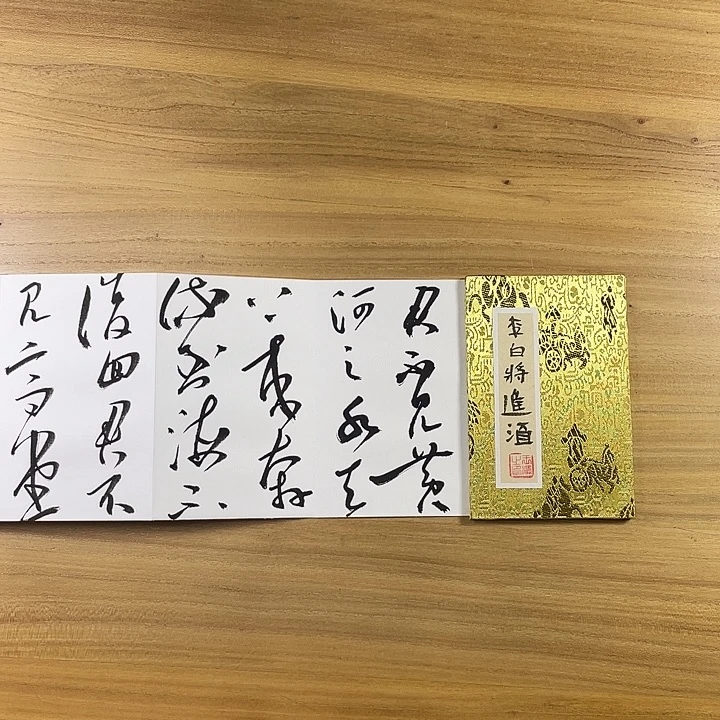 李白將進酒
君不見黄
河之水天
上来奔
流到海不
復回君不
见高堂